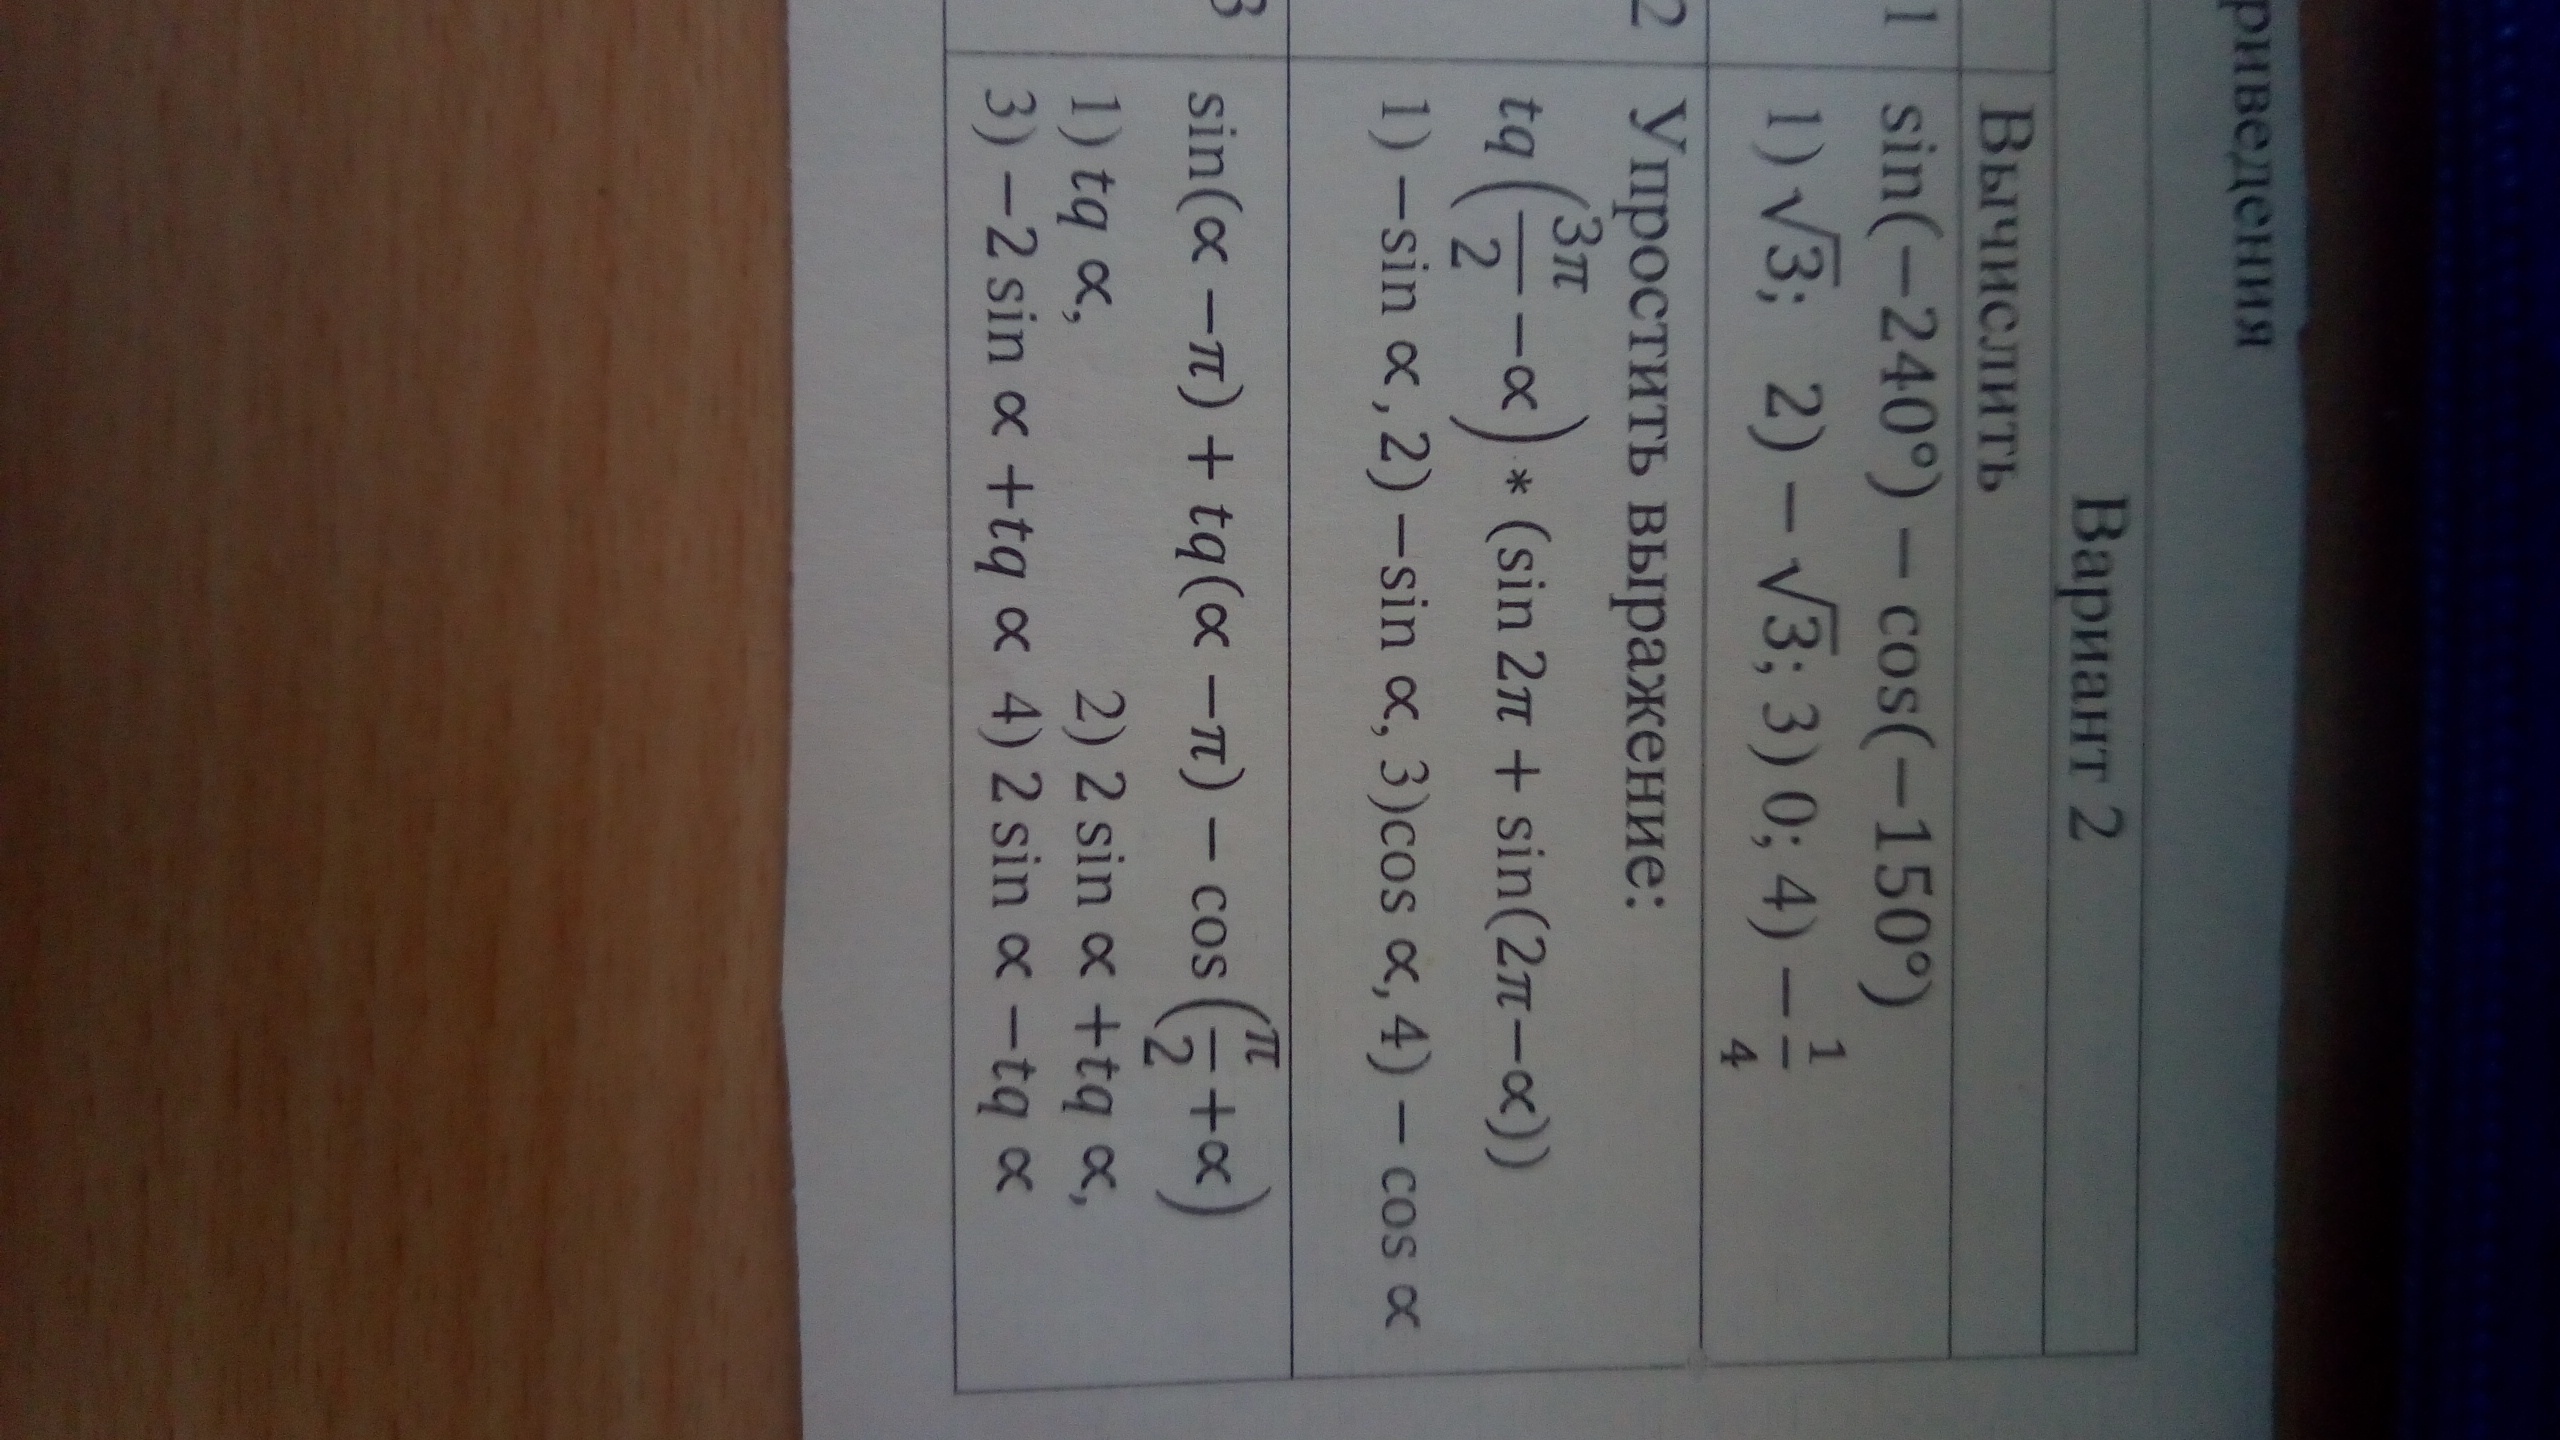 риведения
Вариант 2
Вычислить
1 sin(−240°) − cos(−150°)
1) √3; 2) − √3; 3) 0; 4) − 1/4
2 Упростить выражение:
tq(3π/2 −α) * (sin 2π + sin(2π−α))
1) −sin α , 2) −sin α, 3)cos α, 4) − cos α
3 sin(α −π) + tq(α −π) − cos(π/2 +α)
1) tq α, 2) 2 sin α +tq α,
3) −2 sin α +tq α 4) 2 sin α −tq α